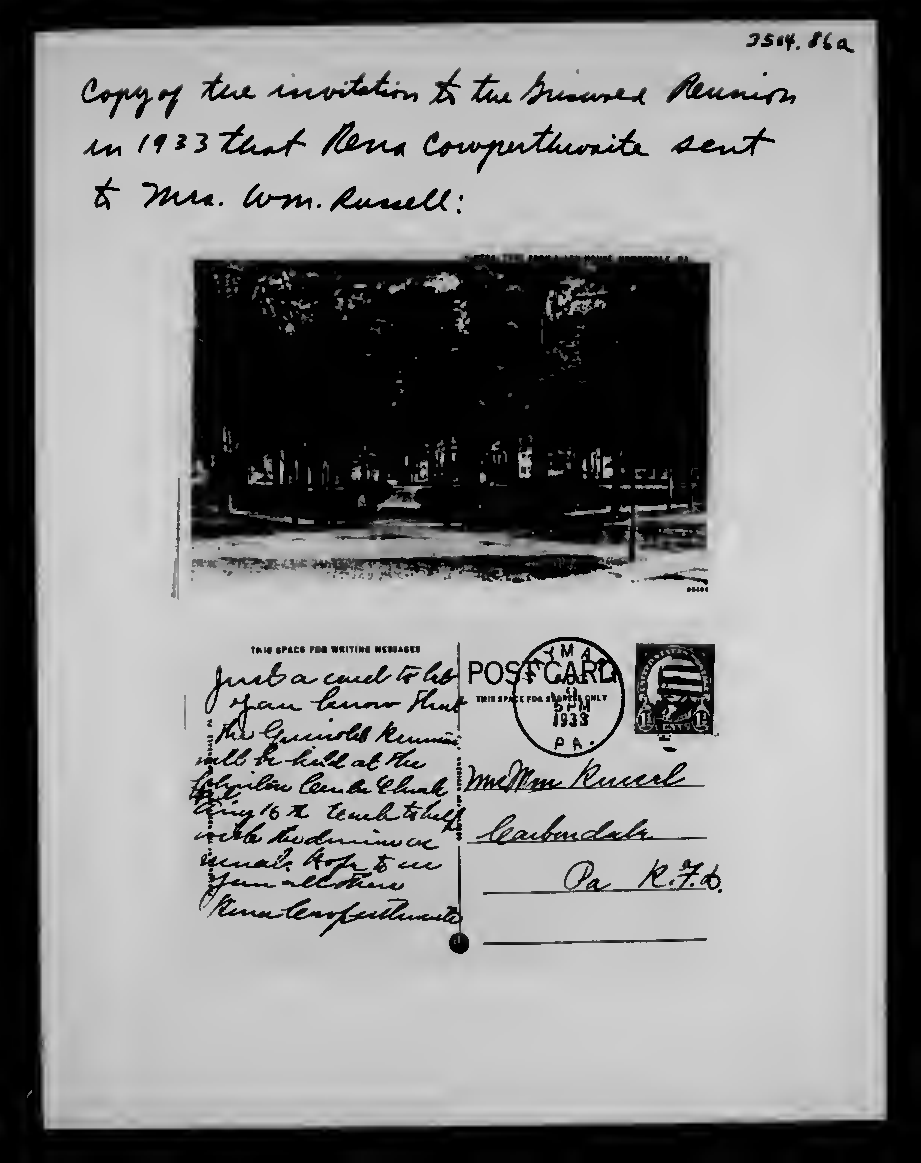 2504.86a
Copy of the invitation to the Griswold Reunion
in 1933 that Rena Cowperthwaite sent
to Mrs. Wm. Russell:
HONESDALE, PA.
THIS SPACE FOR WRITING MESSAGES
Just a card to let
you know that
the Griswold Reunion
will be held at the
Center Church
Aug 16 th
with the dinner as
usual. Hope to see
you all there
Rena Cowperthwaite
POST CARD
THIS SPACE FOR ADDRESS ONLY
5 PM
1933
PA.
1¢ 1¢
CENTS
Mrs Wm Russell
Carbondale
Pa R.F.D.